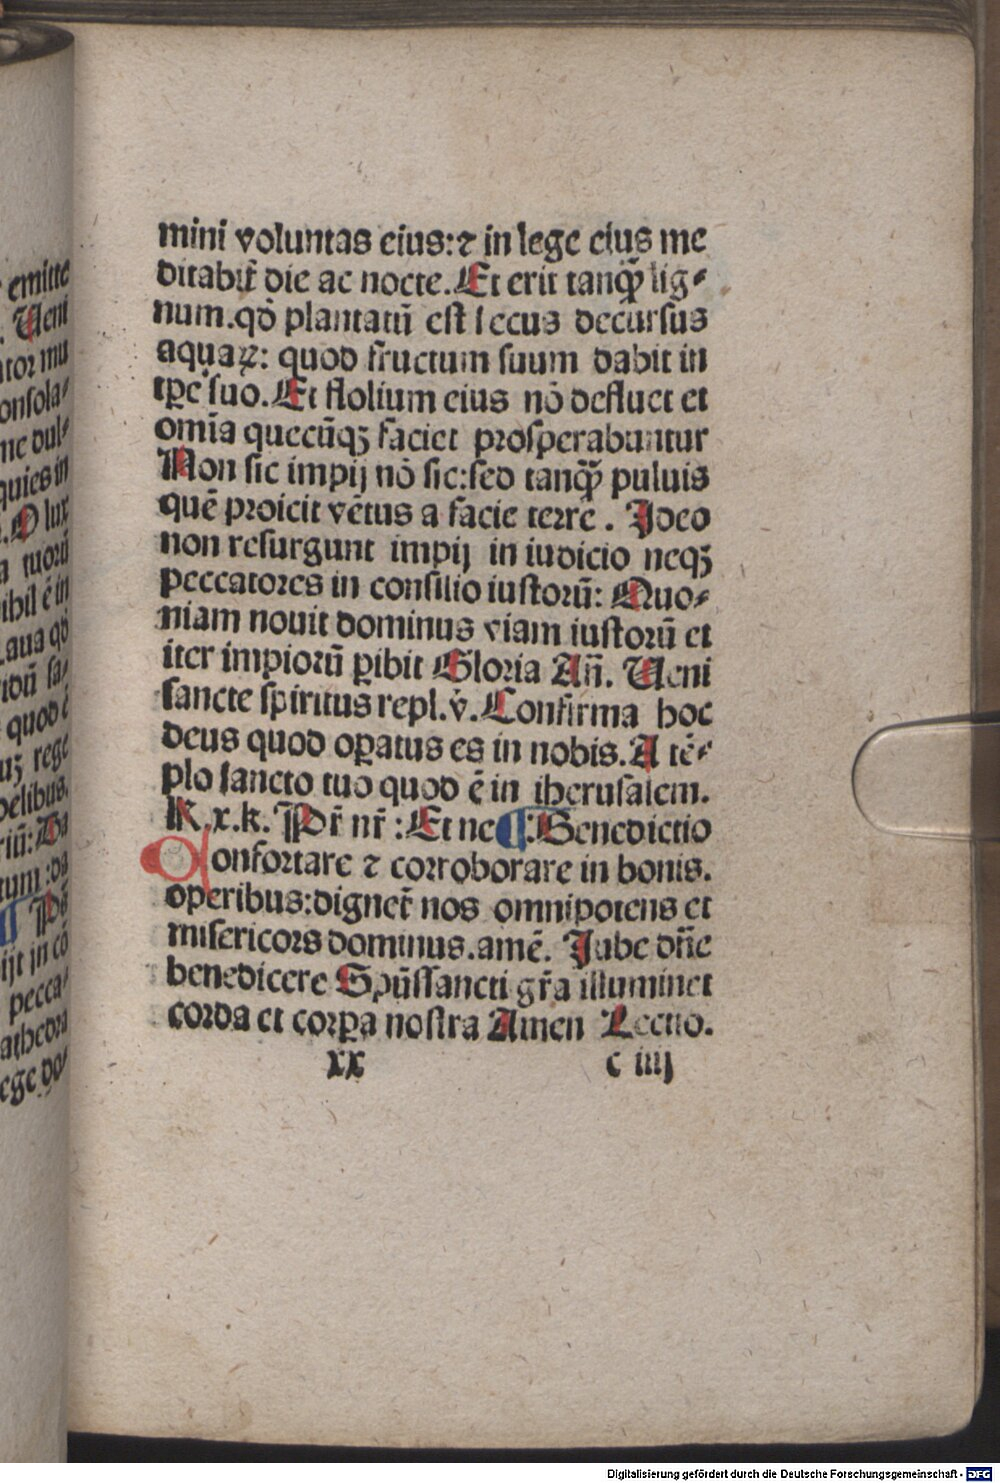 emitte
Ueni
ator mu
onsola⸗
me dul⸗
quies in
O lux
a tuorū
ibil ē in
aua qđ
idū sa⸗
quod ē
uꝫ rege
delibus.
riū: Da
tum: da
ijt in cō
pecca⸗
athedra
ege do⸗
mini voluntas eius: ⁊ in lege eius me
ditabit̃ die ac nocte. Et erit tanq̃ lig⸗
num. qđ plantatū est secus decursus
aquaꝝ: quod fructum suum dabit in
tꝑe suo. Et ffolium eius nō defluet et
omīa quecūqꝫ faciet prosperabuntur
Non sic impij nō sic: sed tanq̃ puluis
quē proicit vētus a facie terre . Ideo
non resurgunt impij in iudicio neqꝫ
peccatores in consilio iustorū: Quo⸗
niam nouit dominus viam iustorū et
iter impiorū ꝑibit Gloria Añ. Ueni
sancte spiritus repl. v̓. Confirma hoc
deus quod oꝑatus es in nobis. A tē⸗
plo sancto tuo quod ē in iherusalem.
K. x. k. Pr̄ nr̄ : Et ne ¶: Benedictio
Confortare ⁊ corroborare in bonis.
operibus: dignet̃ nos omnipotens et
misericors dominus. amē. Iube dñe
benedicere Spūssancti gr̄a illuminet
corda et corꝑa nostra Amen Lectio.
xx c iiij
Digitalisierung gefördert durch die Deutsche Forschungsgemeinschaft - DFG